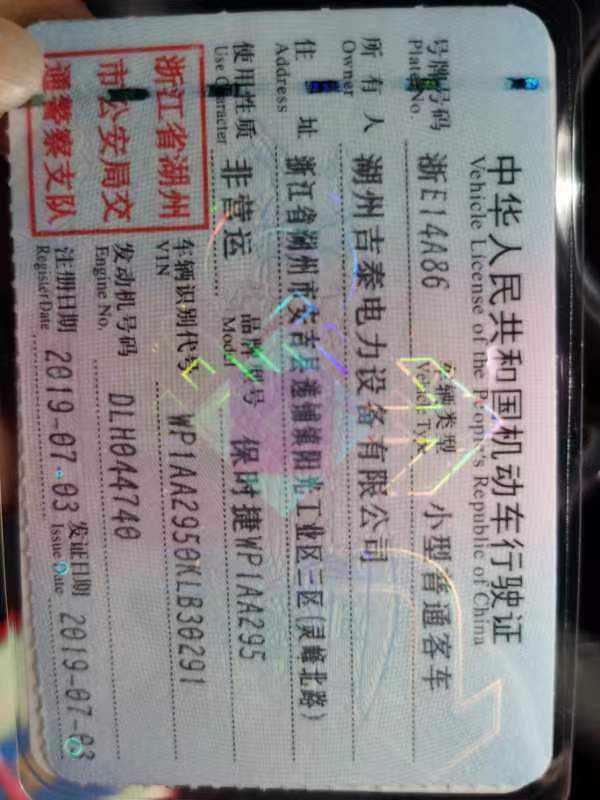 中华人民共和国机动车行驶证
Vehicle License of the People's Republic of China
号牌号码 浙E14A86 车辆类型 小型普通客车
Plate No. Vehicle Type
所有人 湖州吉泰电力设备有限公司
Owner
住址 浙江省湖州市安吉县递铺镇阳光工业区三区(灵峰北路)
Address
使用性质 非营运 品牌型号 保时捷WP1AA295
Use Character Model
浙江省湖州
市公安局交
通警察支队
车辆识别代号 WP1AA2950KLB30291
VIN
发动机号码 DLH044740
Engine No.
注册日期 2019-07-03 发证日期 2019-07-03
Register Date Issue Date